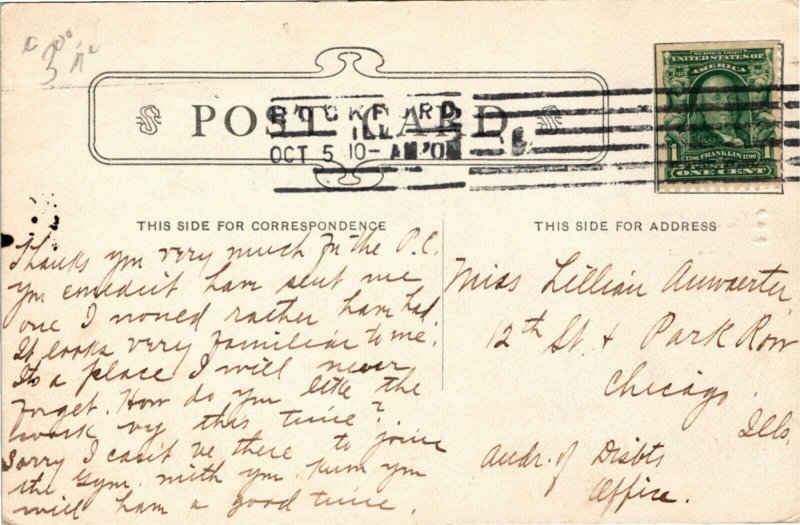 POST CARD
ROCKFORD
ILL
OCT 5 10-AM '0
SERIES 1902
UNITED STATES OF
AMERICA
1706 FRANKLIN 1790
1
ONE CENT
THIS SIDE FOR CORRESPONDENCE
Thanks you very much for the P.C.
you couldn't have sent me
one I would rather have had
It looks very familiar to me.
Its a place I will never
forget. How do you like the
work by this time?
Sorry I can't be there to join
the Gym. with you. Know you
will have a good time.
THIS SIDE FOR ADDRESS
Miss Lillian Auwaerter
12th St. & Park Row
Chicago
Ills.
Audr. of Disbts
Office.